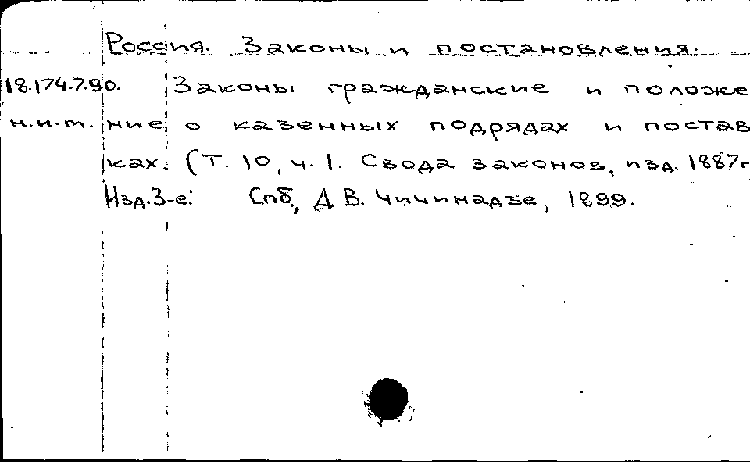 Россия. Законы и постановления.
18.174.7.90. Законы гражданские и положе
н.и.т. ние о казенных подрядах и постав
ках. (Т. 10, ч. 1. Свода законов, изд. 1887г
Изд.3-е. Спб, Д В. Чичинадзе, 1899.